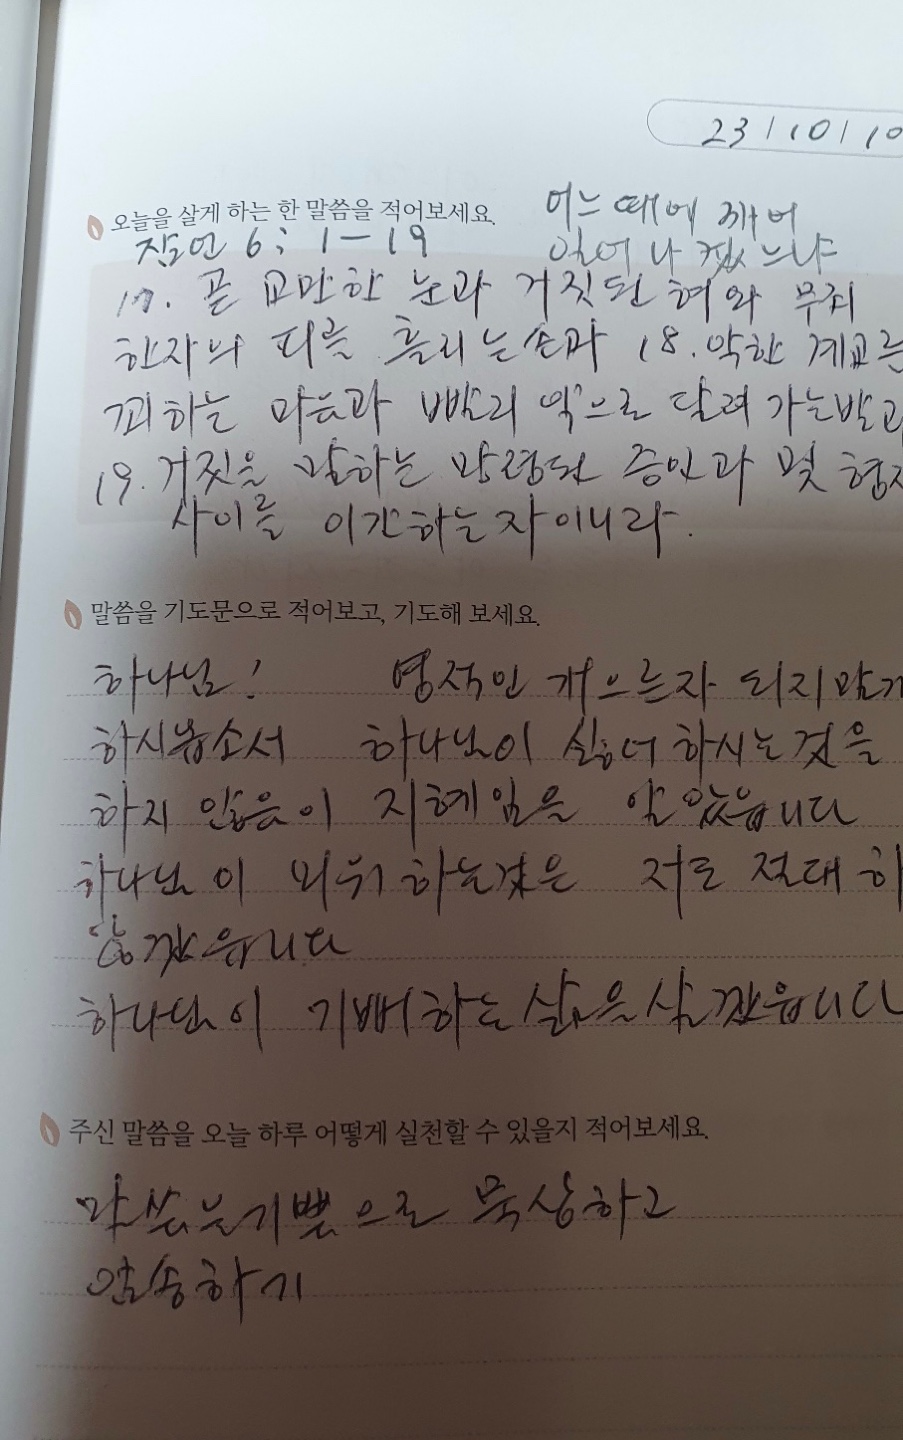 23/10/10
오늘을 살게 하는 한 말씀을 적어보세요.
어느 때에 깨어
일어나겠느냐
잠언 6: 1-19
17. 곧 교만한 눈과 거짓된 혀와 무죄
한자의 피를 흘리는 손과 18. 악한 계교를
꾀하는 마음과 빨리 악으로 달려 가는 발과
19. 거짓을 말하는 망령된 증인과 및 형제
사이를 이간하는 자이니라.
말씀을 기도문으로 적어보고, 기도해 보세요.
하나님! 영적인 게으른자 되지말게
하시옵소서 하나님이 싫어 하시는것을
하지 않음이 지혜임을 알았읍니다
하나님이 미워 하는것은 저도 절대 하
않겠읍니다
하나님이 기뻐하는 삶을 살겠읍니다
주신 말씀을 오늘 하루 어떻게 실천할 수 있을지 적어보세요.
말씀을 기쁨으로 묵상하고
암송하기